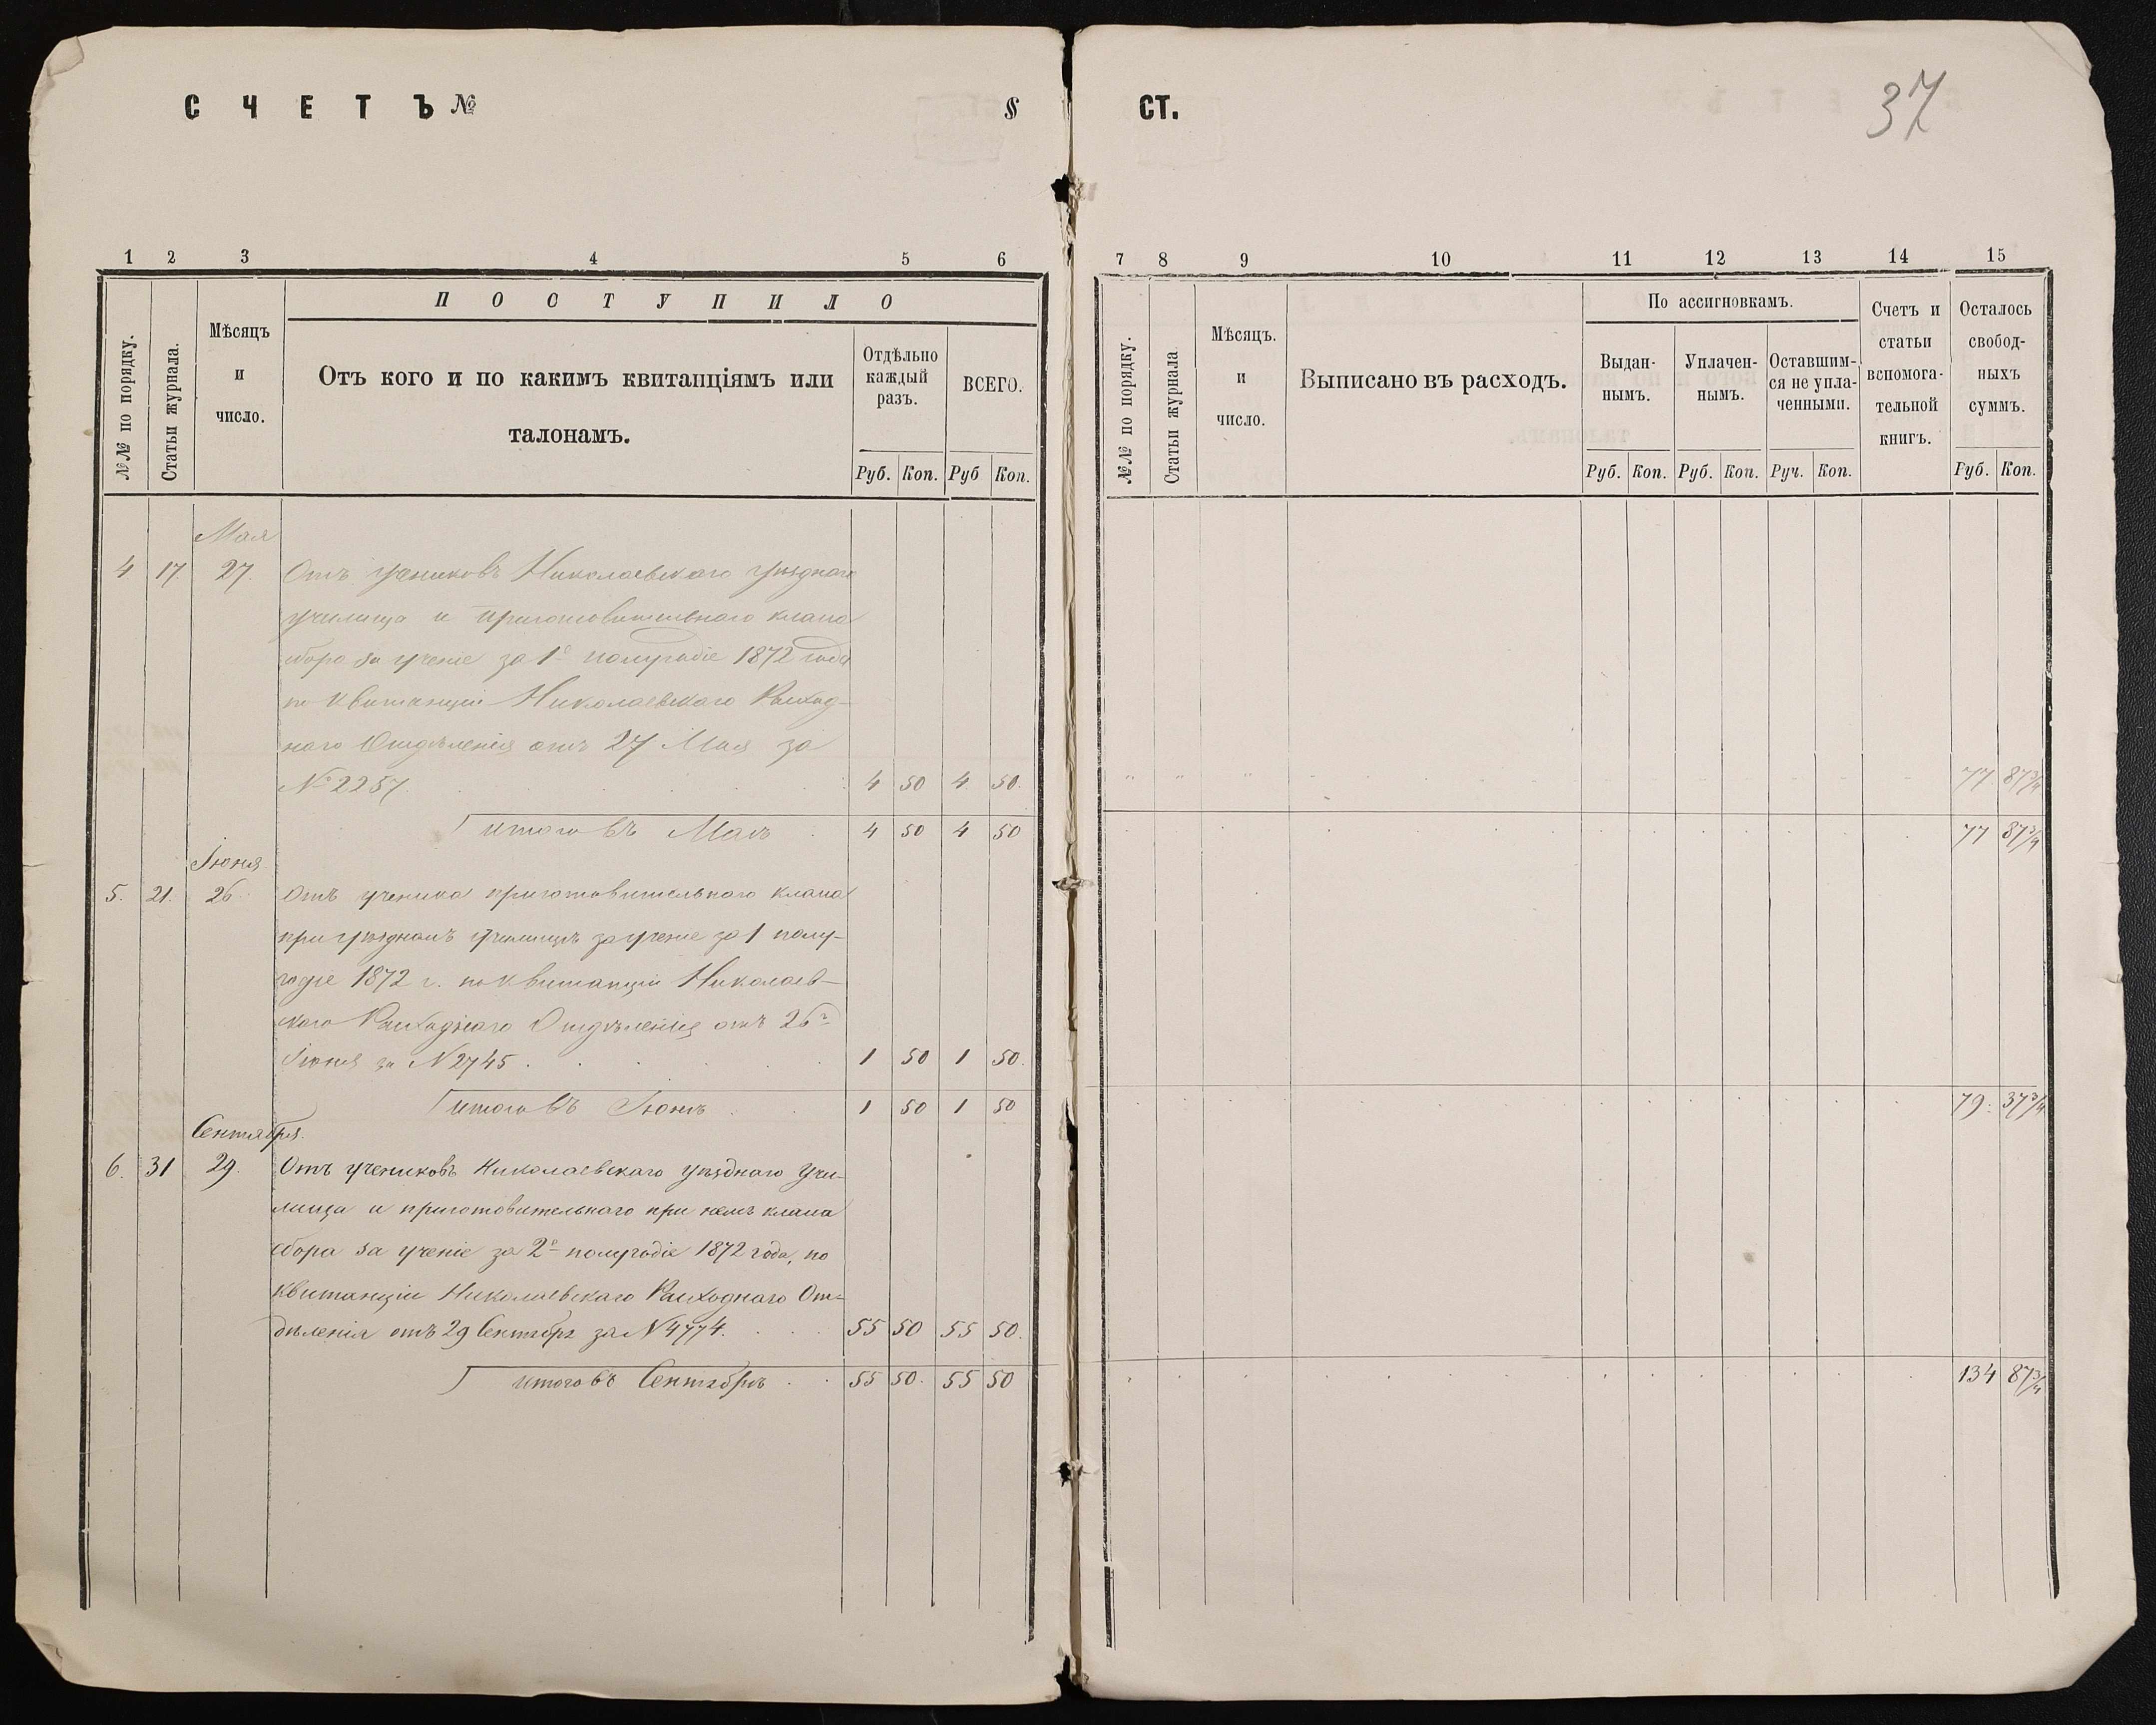 СЧЕТЪ №
§
СТ.
37
1 2 3 4 5 6
№№ по порядку.
Статьи журнала.
Мѣсяцъ
и
число.
ПОСТУПИЛО
Отъ кого и по какимъ квитанціямъ или
талонамъ.
Отдѣльно
каждый
разъ.
ВСЕГО.
Руб. Коп. Руб Коп.
7 8 9 10 11 12 13 14 15
№№ по порядку.
Статьи журнала
Мѣсяцъ.
и
число.
Выписано въ расходъ.
По ассигновкамъ.
Выдан-
нымъ.
Уплачен-
нымъ.
Оставшим-
ся не упла-
ченными.
Счетъ и
статьи
вспомога-
тельной
книгъ.
Осталось
свобод-
ныхъ
суммъ.
Руб. Коп. Руб. Коп. Руч. Коп. Руб. Коп.
Мая
4 17 27. Отъ учениковъ Николаевскаго уѣзднаго
училища и приготовительнаго класса
сбора за ученіе за 1е полугодіе 1872 года
по квитанціи Николаевскаго Расход-
наго Отдѣленія отъ 27 Мая за
№ 2257. 4 50 4 50. 77 87 3/4
итого въ Маѣ 4 50 4 50 77 87 3/4
Іюня
5. 21. 26. Отъ ученика приготовительнаго класса
при уѣздномъ училищѣ за ученіе за 1 полу-
годіе 1872 г. по квитанціи Николаев-
скаго Расходнаго Отдѣленія отъ 26го
Іюня за № 2745. 1 50 1 50.
итого въ Іюнѣ 1 50 1 50 79. 37 3/4
Сентября.
6. 31 29. Отъ учениковъ Николаевскаго уѣзднаго Учи-
лища и приготовительнаго при немъ класса
сбора за ученіе за 2е полугодіе 1872 года, по
квитанціи Николаевскаго Расходнаго От-
дѣленія отъ 29 Сентября за № 4774. 55 50 55 50.
итого въ Сентябрѣ 55 50. 55 50 134 87 3/4